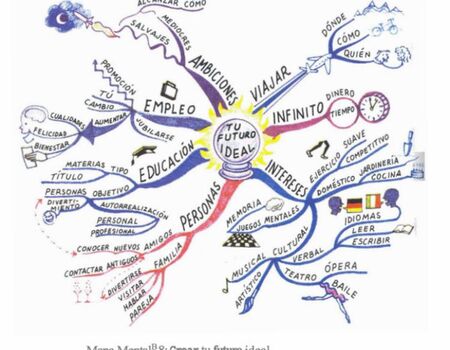 ALCANZAR CÓMO
MEDIOCRES
SALVAJES
AMBICIONES
VIAJAR
DÓNDE
CÓMO
QUIÉN
INFINITO
DINERO
TIEMPO
TU
FUTURO
IDEAL
EMPLEO
PROMOCIÓN
TÚ
CAMBIO
AUMENTAR
JUBILARSE
CUALIDADES
FELICIDAD
BIENESTAR
EDUCACIÓN
MATERIAS
TIPO
TÍTULO
PERSONAS
OBJETIVO
DIVERTI-
MIENTO
AUTORREALIZACIÓN
PERSONAL
PROFESIONAL
PERSONAS
AMIGOS
CONOCER NUEVOS
CONTACTAR ANTIGUOS
FAMILIA
DIVERTIRSE
VISITAR
HABLAR
PAREJA
INTERESES
EJERCICIO
SUAVE
COMPETITIVO
DOMÉSTICO
JARDINERÍA
COCINA
IDIOMAS
LEER
ESCRIBIR
VERBAL
MEMORIA
JUEGOS MENTALES
CULTURAL
MUSICAL
ARTÍSTICO
TEATRO
ÓPERA
BAILE